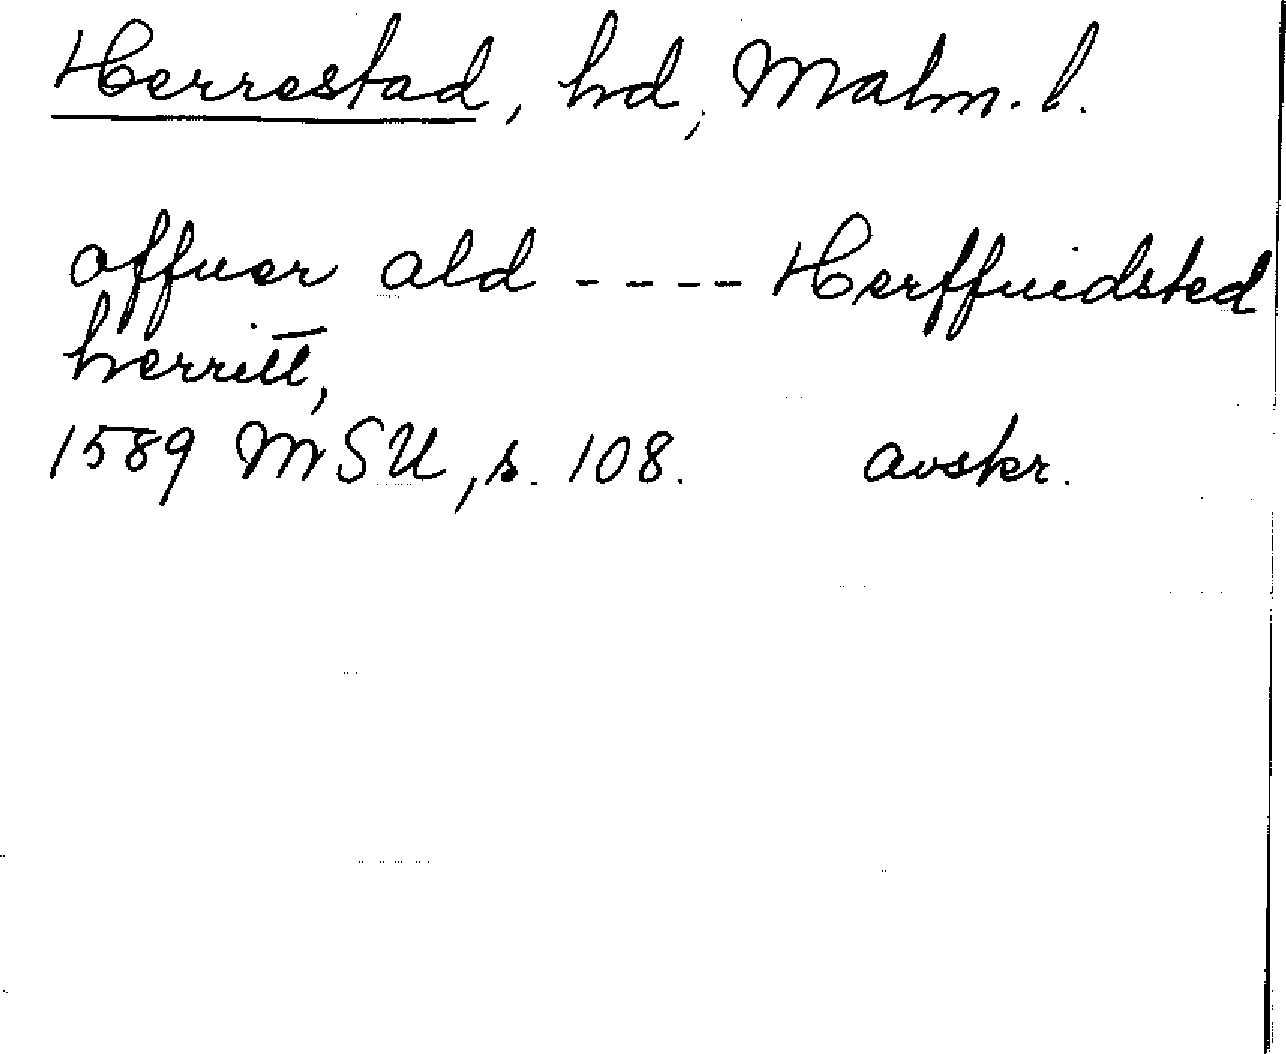 Herrestad, hd, Malm. l.
offuer ald ---- Herffuidsted
herritt,
1589 MSU, s. 108. avskr.